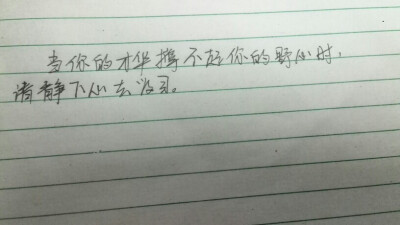 当你的才华撑不起你的野心时，
请静下心去学习。